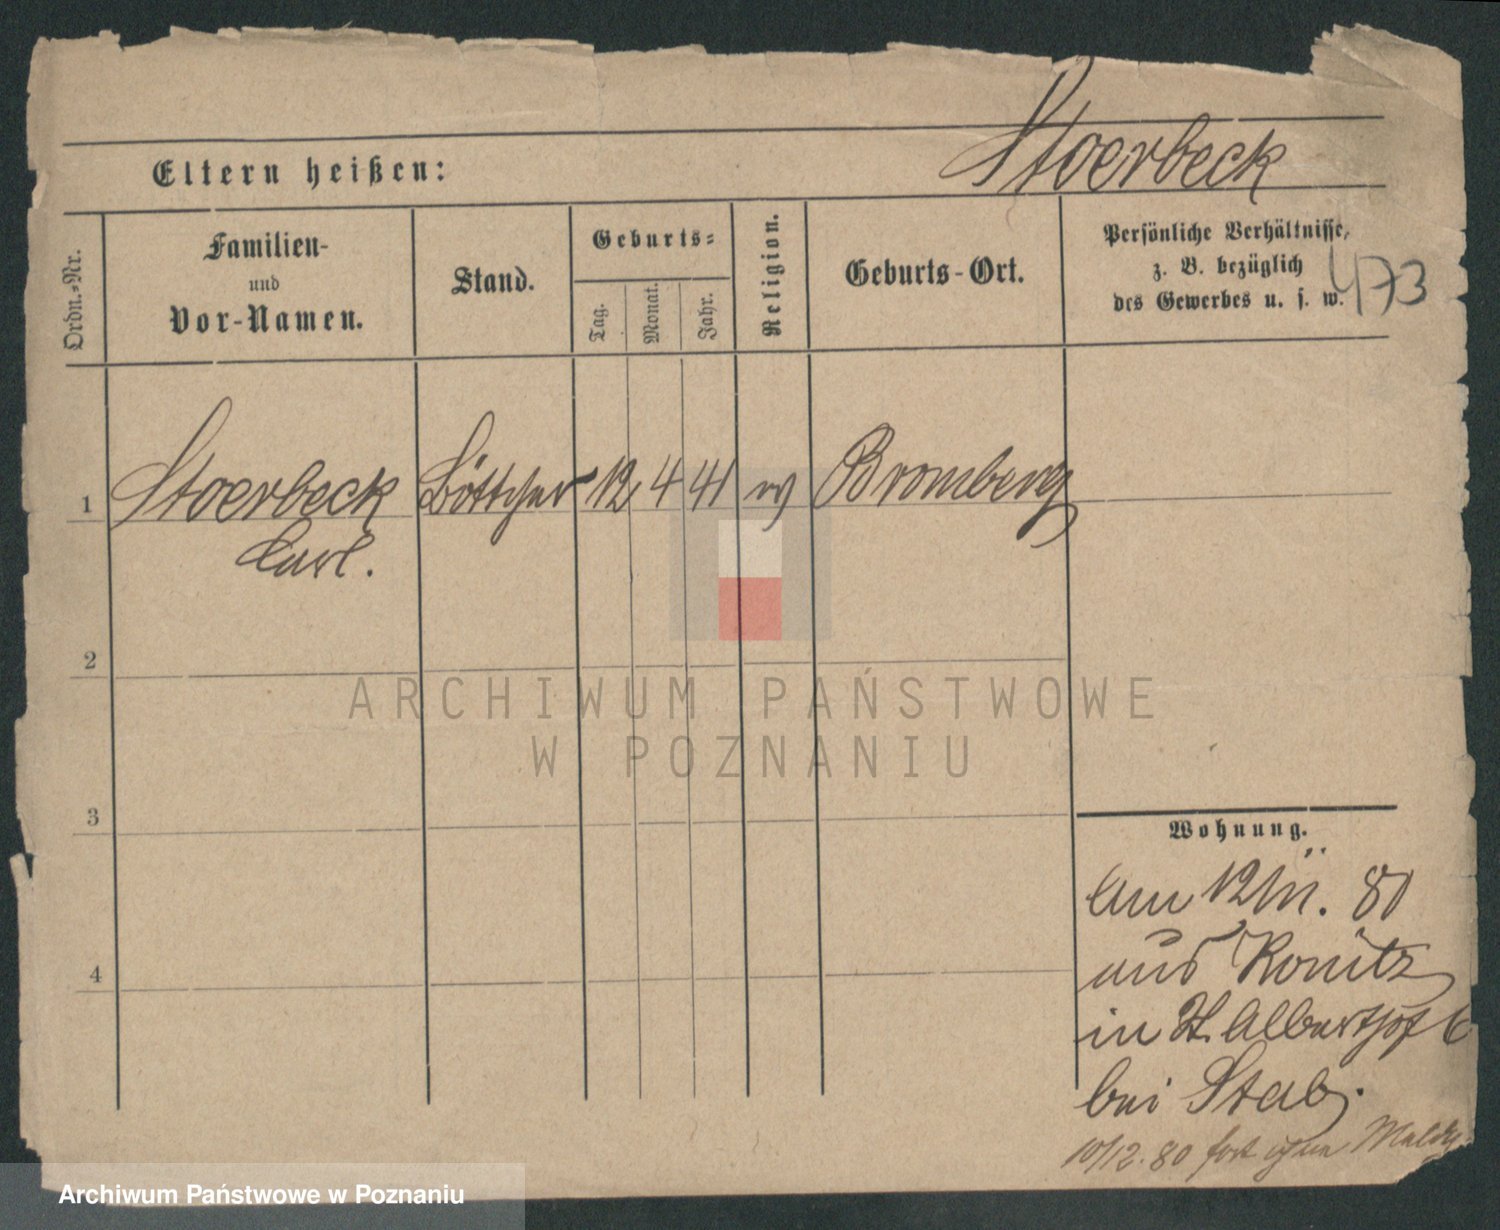 Stoerbeck
Eltern heißen:
Ordn.-Nr.
Familien-
und
Vor-Namen.
Stand.
Geburts-
Tag.
Monat.
Jahr.
Religion.
Geburts-Ort.
Persönliche Verhältnisse,
z. B. bezüglich
des Gewerbes u. s. w.
473
1
Stoerbeck Böttcher 12 4 41 Bromberg
Carl.
2
3
4
Wohnung.
Am 80
aus Konitz
in St. Adalberthof 6
bei Stab.
10/12. 80 fort ohne Meldg
ARCHIWUM PAŃSTWOWE
W POZNANIU
Archiwum Państwowe w Poznaniu